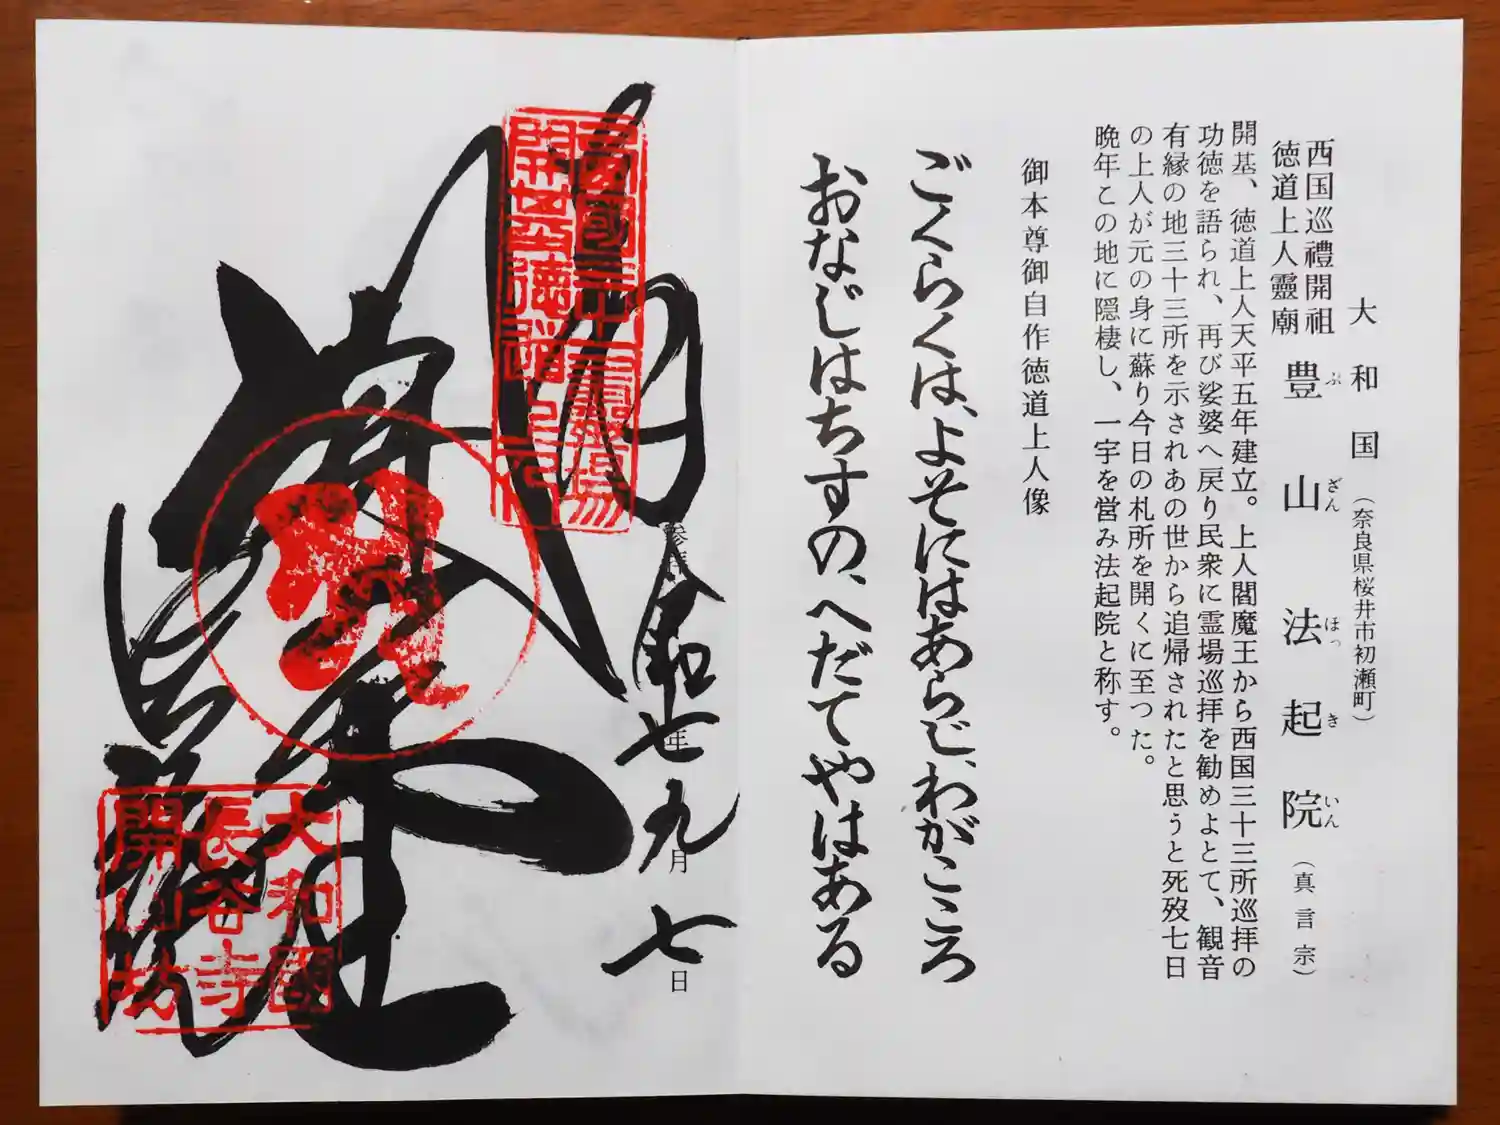 大和国
(奈良県桜井市初瀬町)
西国巡禮開祖
徳道上人靈廟
豊山法起院
ぶざんほっきいん
(真言宗)
開基、徳道上人天平五年建立。上人閻魔王から西国三十三所巡拝の
功徳を語られ、再び娑婆へ戻り民衆に霊場巡拝を勧めよとて、観音
有縁の地三十三所を示されあの世から追帰されたと思うと死歿七日
の上人が元の身に蘇り今日の札所を開くに至つた。
晩年この地に隠棲し、一宇を営み法起院と称す。
御本尊御自作徳道上人像
ごくらくは、よそにはあらじ、わがこころ
おなじはちすの、へだてやはある
参拝
令和七年九月七日
大和國
長谷寺
開山坊